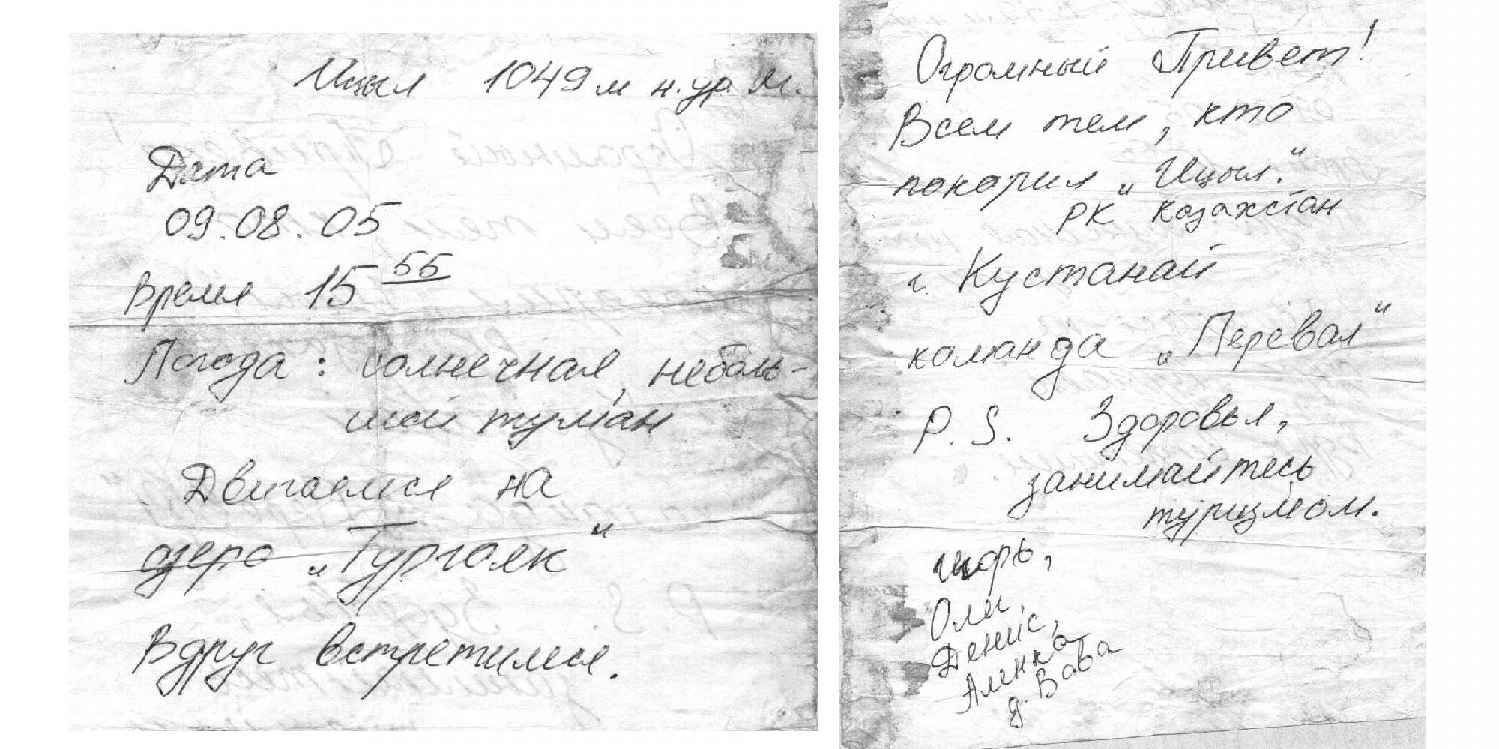 Ицыл 1049 м н.ур.м.
Дата
09.08.05
Время 15 55
Погода: солнечная, неболь-
шой туман
Двигаемся на
озеро „Тургояк“
Вдруг встретимся.
Огромный Привет!
Всем тем, кто
покорил „Ицыл.“
РК Казахстан
г. Кустанай
команда „Перевал“
P.S. Здоровья,
занимайтесь
туризмом.
Игорь,
Оли,
Денис,
Аленка
д. Вова